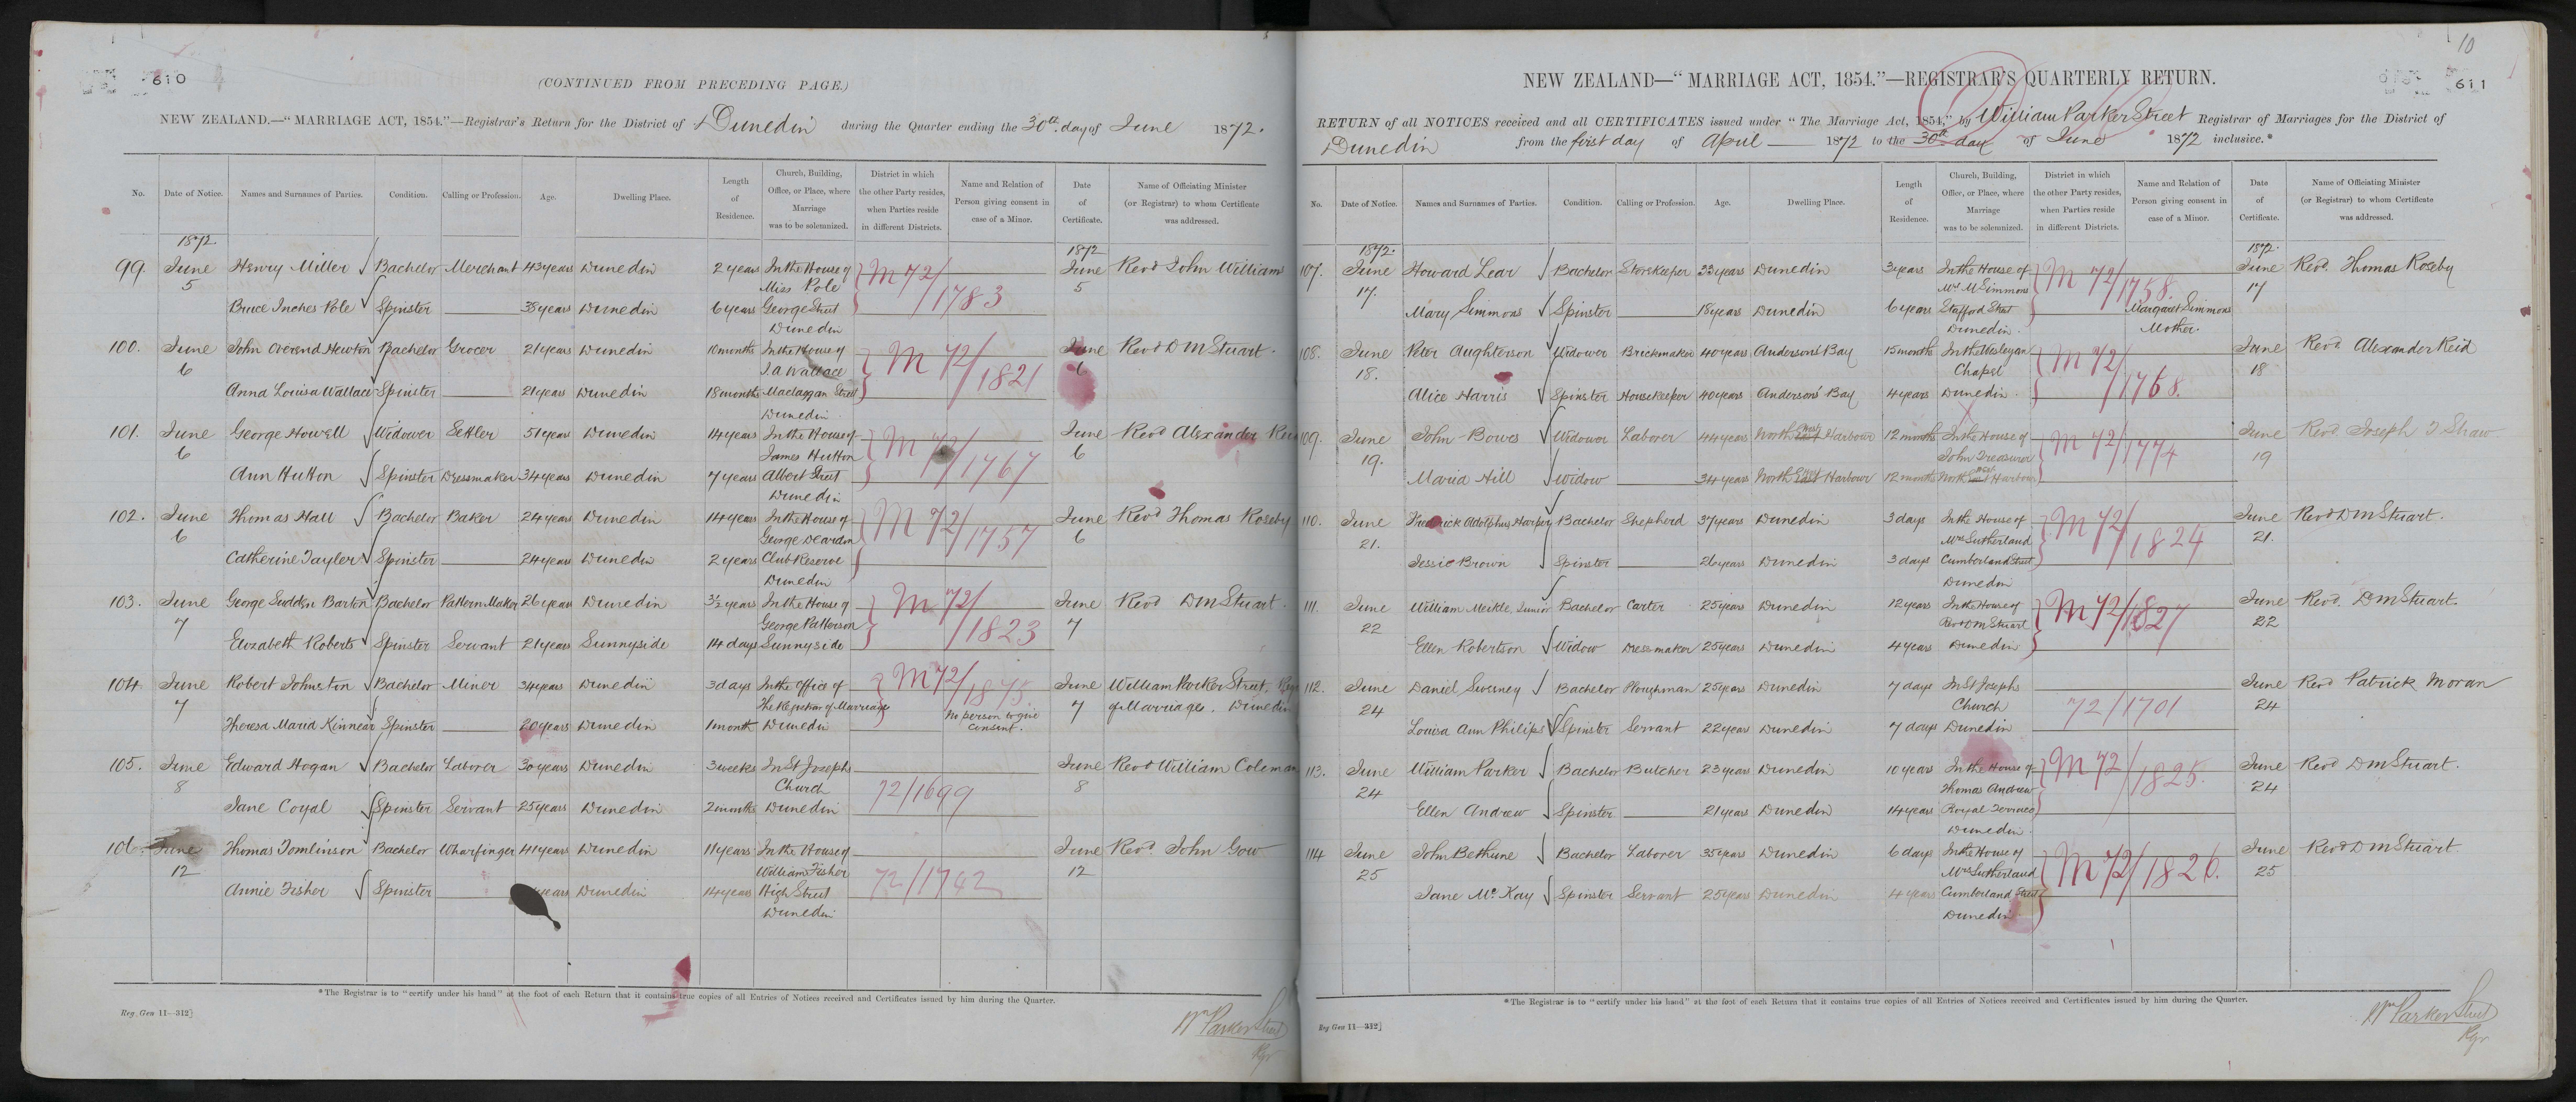 610
(CONTINUED FROM PRECEDING PAGE.)
NEW ZEALAND.—"MARRIAGE ACT, 1854."—Registrar's Return for the District of Dunedin during the Quarter ending the 30th day of June 1872.
No. Date of Notice. Names and Surnames of Parties. Condition. Calling or Profession. Age. Dwelling Place. Length of Residence. Church, Building, Office, or Place, where Marriage was to be solemnized. District in which the other Party resides, when Parties reside in different Districts. Name and Relation of Person giving consent in case of a Minor. Date of Certificate. Name of Officiating Minister (or Registrar) to whom Certificate was addressed.
1872. 1872
99. June Henry Miller Bachelor Merchant 43 years Dunedin 2 years In the House of M 72/1783 June Revd John Williams
5 Miss Pole 5
Bruce Inches Pole Spinster 38 years Dunedin 6 years George Street
Dunedin
100. June John Overend Hewton Bachelor Grocer 21 years Dunedin 10 months In the House of M 72/1821 June Revd D M Stuart.
6 J A Wallace 6
Anna Louisa Wallace Spinster 21 years Dunedin 18 months Maclaggan Street
Dunedin.
101. June George Howell Widower Settler 51 years Dunedin 14 years In the House of M 72/1767 June Revd Alexander Reid
6 James Hutton 6
Ann Hutton Spinster Dressmaker 34 years Dunedin 7 years Albert Street
Dunedin
102. June Thomas Hall Bachelor Baker 24 years Dunedin 14 years In the House of M 72/1757 June Revd Thomas Roseby
6 George Deardon 6
Catherine Tayler Spinster 24 years Dunedin 2 years Club Reserve
Dunedin
103. June George Sudden Barton Bachelor Pattern Maker 26 years Dunedin 3½ years In the House of M 72/1823 June Revd D M Stuart.
7 George Patterson 7
Elizabeth Roberts Spinster Servant 21 years Sunnyside 14 days Sunnyside
104. June Robert Johnston Bachelor Miner 34 years Dunedin 3 days In the Office of M 72/1875 June William Parker Street, Regr
7 The Registrar of Marriages No person to give consent. 7 of Marriages. Dunedin
Theresa Maria Kinnear Spinster 20 years Dunedin 1 month Dunedin
105. June Edward Hogan Bachelor Laborer 30 years Dunedin 3 weeks In St Josephs June Revd William Coleman
8 Church 72/1699 8
Jane Coyal Spinster Servant 25 years Dunedin 2 months Dunedin
106. June Thomas Tomlinson Bachelor Wharfinger 41 years Dunedin 11 years In the House of June Revd. John Gow
12 William Fisher 72/1742 12
Annie Fisher Spinster years Dunedin 14 years High Street
Dunedin
*The Registrar is to "certify under his hand" at the foot of each Return that it contains true copies of all Entries of Notices received and Certificates issued by him during the Quarter.
Reg. Gen 11—312]
Wm Parker Street
Rgr
10
611
NEW ZEALAND—"MARRIAGE ACT, 1854."—REGISTRAR'S QUARTERLY RETURN.
RETURN of all NOTICES received and all CERTIFICATES issued under "The Marriage Act, 1854," by William Parker Street Registrar of Marriages for the District of
Dunedin from the first day of April 1872 to the 30th day of June 1872 inclusive.*
No. Date of Notice. Names and Surnames of Parties. Condition. Calling or Profession. Age. Dwelling Place. Length of Residence. Church, Building, Office, or Place, where Marriage was to be solemnized. District in which the other Party resides, when Parties reside in different Districts. Name and Relation of Person giving consent in case of a Minor. Date of Certificate. Name of Officiating Minister (or Registrar) to whom Certificate was addressed.
1872. 1872.
107. June Howard Lear Bachelor Storekeeper 33 years Dunedin 3 years In the House of M 72/1758. June Revd. Thomas Roseby
17. Mrs M Simmons 17
Mary Simmons Spinster 18 years Dunedin 6 years Stafford Street Margaret Simmons
Dunedin. Mother.
108. June Peter Aughterson Widower Brickmaker 40 years Andersons' Bay 15 months In the Wesleyan M 72/1768. June Revd Alexander Reid
18. Chapel 18
Alice Harris Spinster Housekeeper 40 years Andersons' Bay 4 years Dunedin.
109. June John Bowes Widower Laborer 44 years North East West Harbour 12 months In the House of M 72/1774 June Revd Joseph T Shaw
19. John Treasurer 19
Maria Hill Widow 34 years North East West Harbour 12 months North East West Harbour
110. June Fredrick Adolphus Harper Bachelor Shepherd 37 years Dunedin 3 days In the House of M 72/1824 June Revd D M Stuart.
21. Mrs Sutherland 21.
Jessie Brown Spinster 26 years Dunedin 3 days Cumberland Street
Dunedin
111. June William Meikle, Junior Bachelor Carter 25 years Dunedin 12 years In the House of M 72/1827 June Revd. D M Stuart.
22 Revd D M Stuart 22
Ellen Robertson Widow Dressmaker 25 years Dunedin 4 years Dunedin
112. June Daniel Sweeney Bachelor Ploughman 25 years Dunedin 7 days In St Josephs June Revd Patrick Moran
24 Church 72/1701 24
Louisa Ann Philips Spinster Servant 22 years Dunedin 7 days Dunedin
113. June William Parker Bachelor Butcher 23 years Dunedin 10 years In the House of M 72/1825. June Revd D M Stuart.
24 Thomas Andrew 24
Ellen Andrew Spinster 21 years Dunedin 14 years Royal Terrace
Dunedin.
114 June John Bethune Bachelor Laborer 35 years Dunedin 6 days In the House of M 72/1826. June Revd D M Stuart.
25 Mrs Sutherland 25
Jane McKay Spinster Servant 25 years Dunedin 4 years Cumberland Street
Dunedin
*The Registrar is to "certify under his hand" at the foot of each Return that it contains true copies of all Entries of Notices received and Certificates issued by him during the Quarter.
Reg Gen 11—312]
Wm Parker Street
Rgr